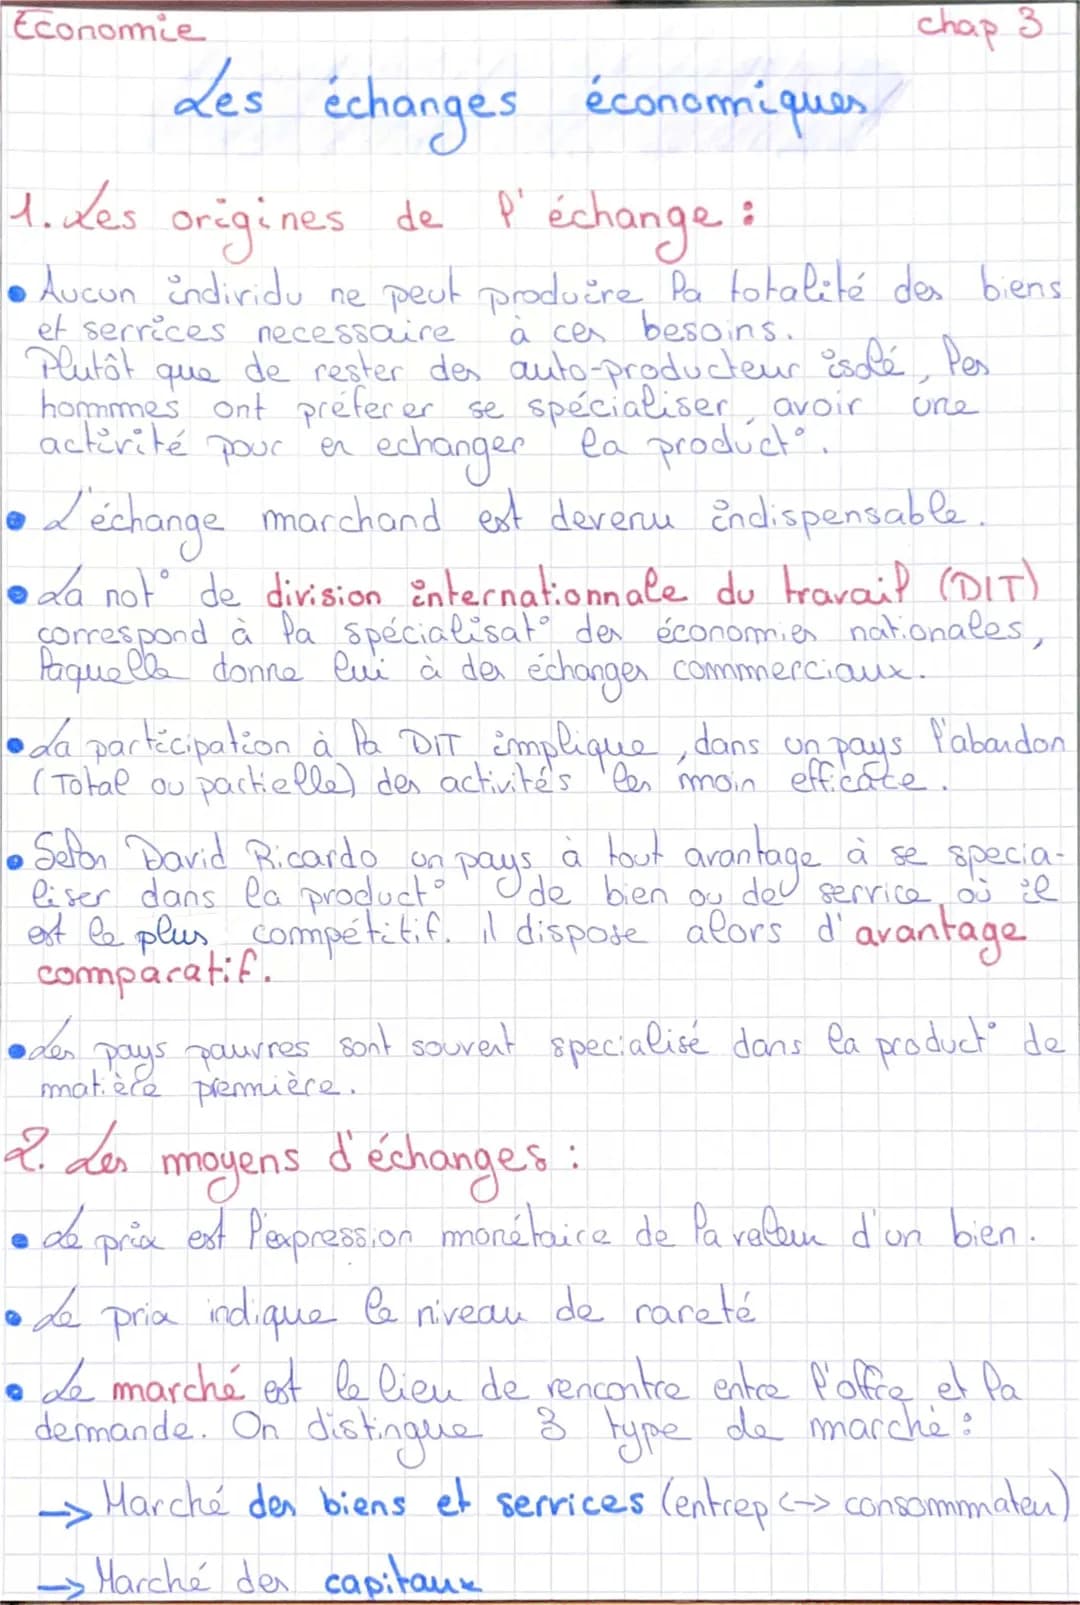 Economie chap 3
Les échanges économiques
1. Les origines de l'échange :
• Aucun individu ne peut produire la totalité des biens
et services necessaire à ces besoins.
Plutôt que de rester des auto-producteur isolé, les
hommmes ont préferer se spécialiser, avoir une
activité pour en echanger la product°.
• L'échange marchand est devenu indispensable.
• La not° de division internationnale du travail (DIT)
correspond à la spécialisat° des économies nationales,
laquelle donne lui à des échanges commmerciaux.
• La participation à la DIT implique, dans un pays l'abandon
(Total ou partielle) des activités les moin efficace.
• Selon David Ricardo un pays à tout avantage à se specia-
liser dans la product° de bien ou de service où il
est le plus compétitif. il dispose alors d'avantage
comparatif.
• Les pays pauvres sont souvent specialisé dans la product° de
matière première.
2. Les moyens d'échanges :
• Le prix est l'expression monétaire de la valeur d'un bien.
• Le prix indique le niveau de rareté
• Le marché est le lieu de rencontre entre l'offre et la
demande. On distingue 3 type de marché :
→ Marché des biens et services (entrep <-> consommmateur)
→ Marché des capitaux